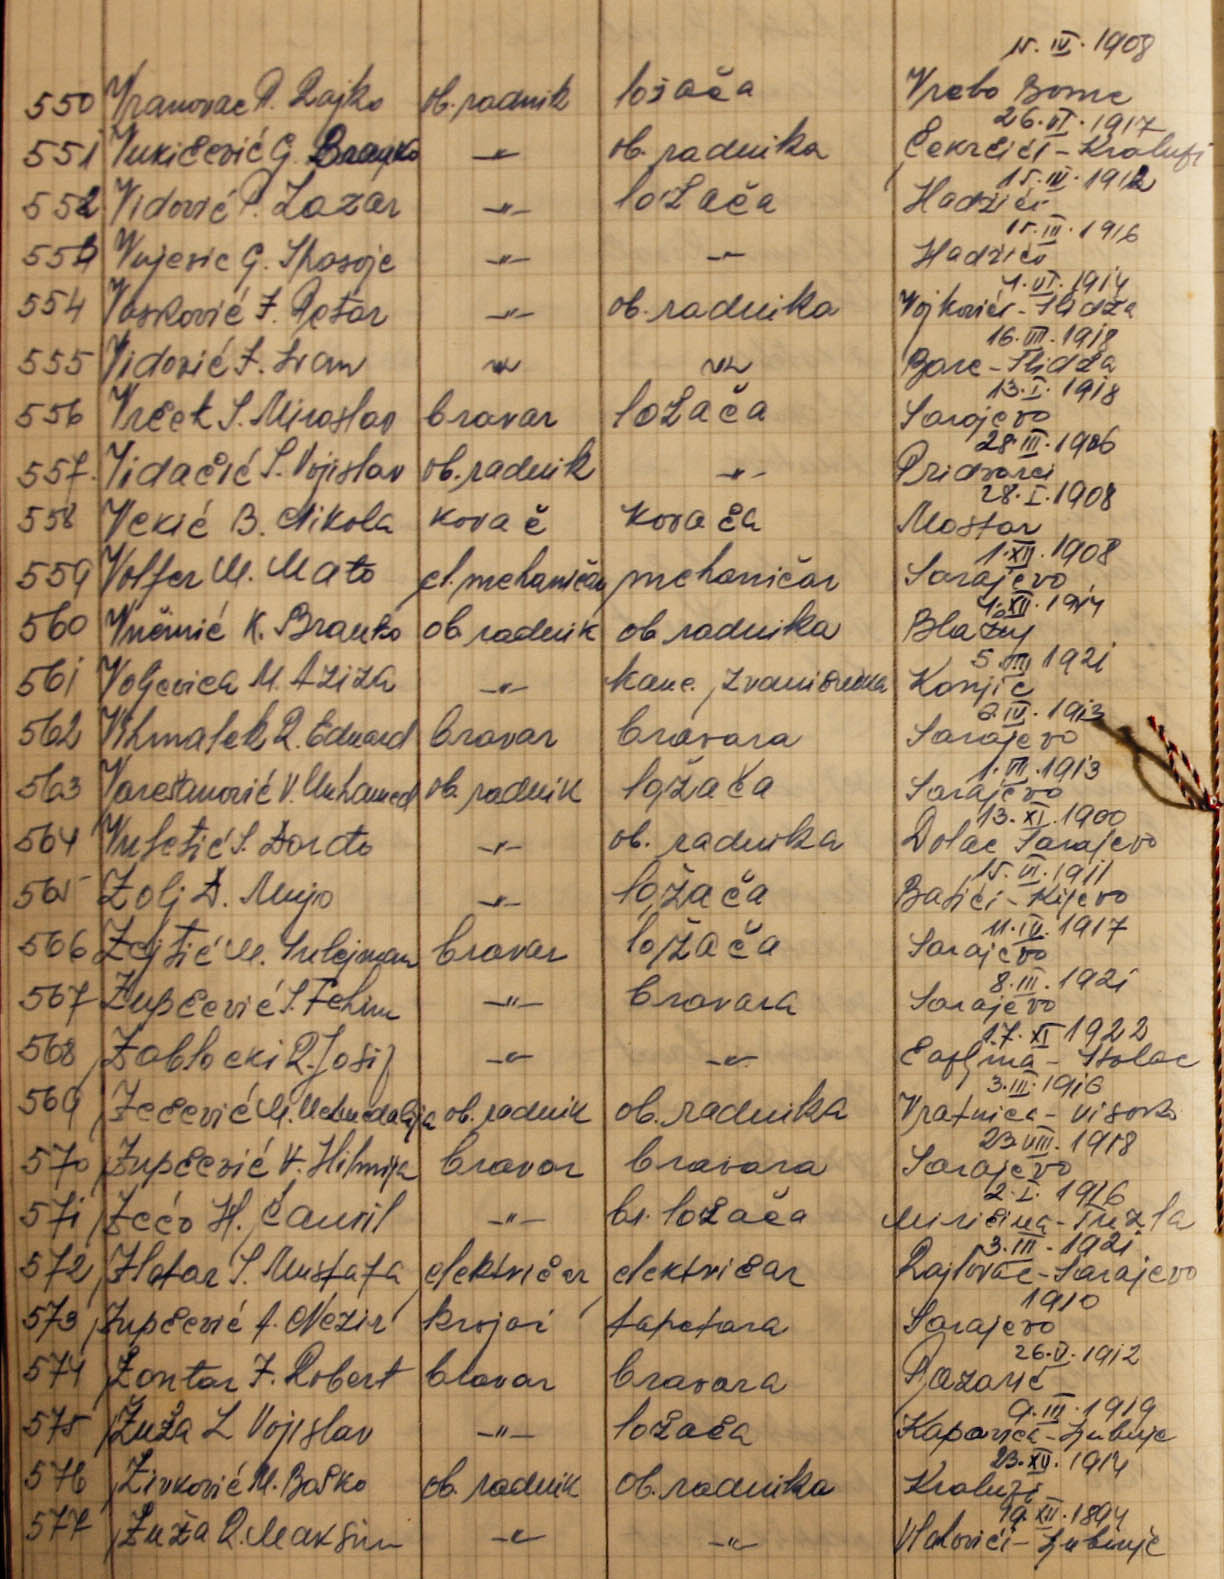 15. IV. 1908
550 Vranovac P. Rajko ob. radnik ložača Vrebo Borne
26. VI. 1917
551 Vukičević G. Branko -"- ob. radnika Čekrčići - Kralupi
15. III. 1912
552 Vidović P. Lazar -"- ložača Hadžići
15. III. 1916
553 Vujesic G. Spasoje -"- -"- Hadžići
1. VI. 1914
554 Vasković J. Petar -"- ob. radnika Vojkovići - Ilidža
16. VII. 1918
555 Vidović J. Ivan -"- -"- Bare - Ilidža
13. I. 1918
556 Vrček S. Miroslav bravar ložača Sarajevo
28. III. 1906
557. Vidačić S. Vojislav ob. radnik -"- Pridvorci
28. I. 1908
558 Vekić B. Nikola kovač kovača Mostar
1. XII. 1908
559 Volfer M. Mato el. mehaničar mehaničar Sarajevo
1. XII. 1914
560 Vnčinić K. Branko ob. radnik ob radnika Blažuj
5. III 1921
561 Voljevica M. Aziza -"- kanc. zvaničnika Konjic
6. IV. 1913
562 Vihnalek R. Eduard bravar bravara Sarajevo
1. VII. 1913
563 Varešanović V. Muhamed ob. radnik ložača Sarajevo
13. XI. 1900
564 Vuletić S. Đorđo -"- ob. radnika Dolac Sarajevo
15. VI. 1911
565 Zolj A. Mujo -"- ložača Batići - Kijevo
11. IV. 1917
566 Zejtić M. Sulejman bravar ložača Sarajevo
8. III. 1921
567 Zupčević S. Fehim -"- bravara Sarajevo
17. XI 1922
568 Zablocki R. Josip -"- -"- Čapljina - Stolac
3. III. 1916
569 Zečević M. Mehmedalija ob. radnik ob. radnika Vratnica - Visoko
23. VIII. 1918
570 Zupčević A. Hilmija bravar bravara Sarajevo
2. I. 1926
571 Zećo H. Ćamil -"- br. ložača Miričina - Tuzla
3. III. 1921.
572 Zlatar S. Mustafa električar električar Rajlovac - Sarajevo
1910
573 Zupčević A. Nezir krojač tapetara Sarajevo
26. V. 1912
574 Zontar J. Robert bravar bravara Pazarić
9. III. 1919
575 Zuža L Vojislav -"- ložača Kapavica - Ljubinje
23. XII. 1914
576 Živković M. Boško ob. radnik ob. radnika Kralupi
19. XII. 1894
577 Zuža R. Maksim -"- -"- Vlahovići - Ljubinje